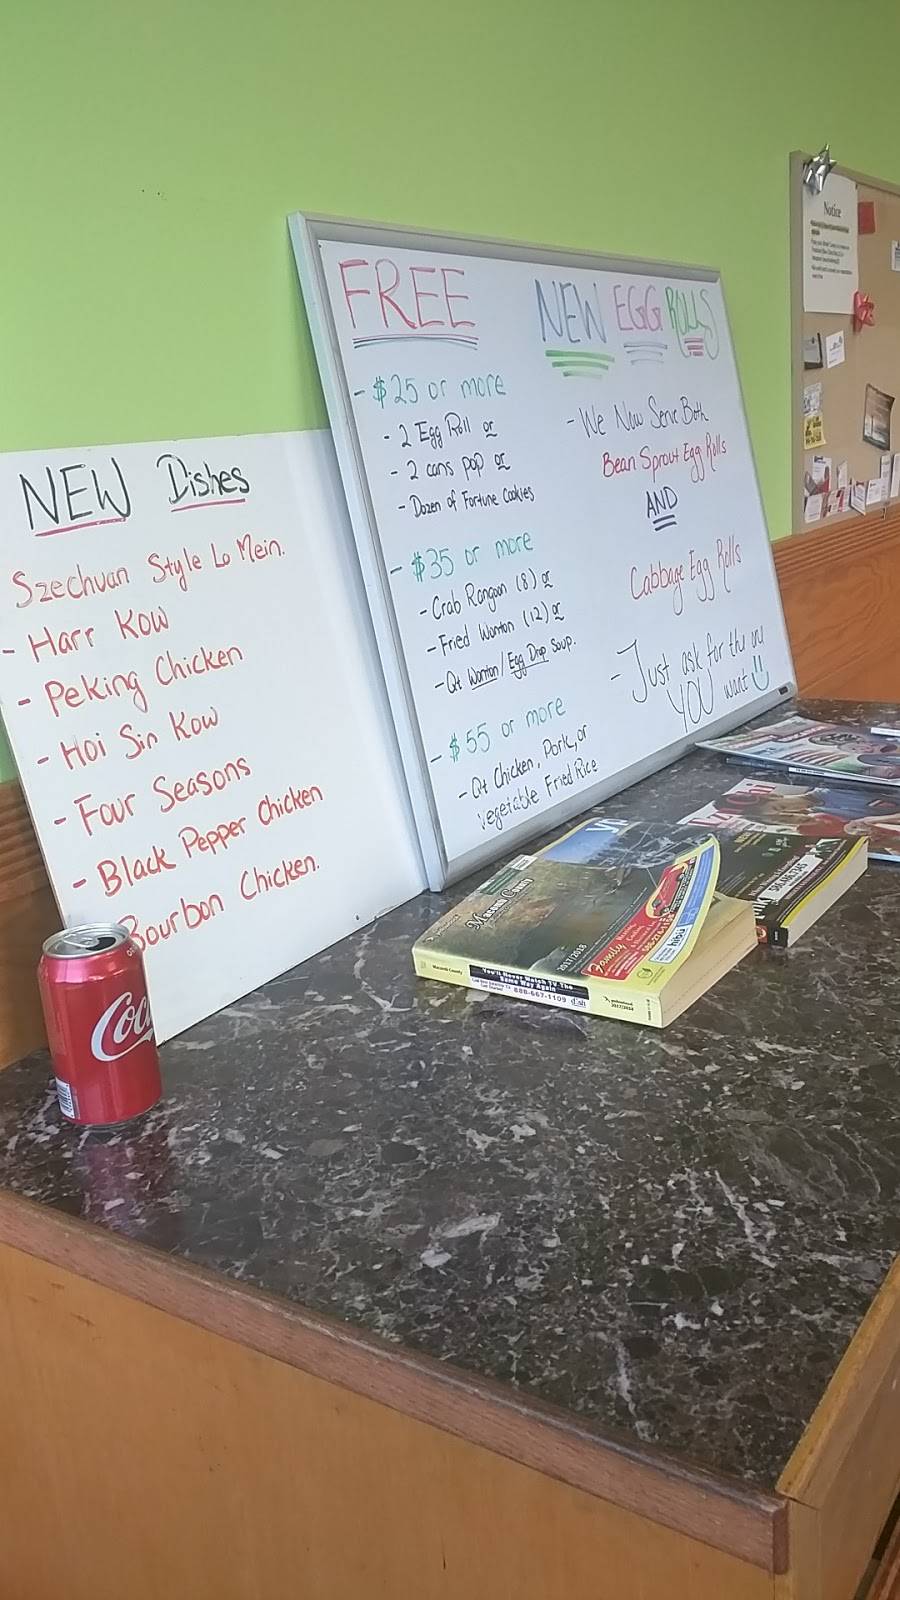 NEW Dishes
Szechuan Style Lo Mein.
- Harr Kow
- Peking Chicken
- Hoi Sin Kow
- Four Seasons
- Black Pepper Chicken
Bourbon Chicken.
FREE
- $25 or more
- 2 Egg Roll or
- 2 cans pop or
- Dozen of Fortune Cookies
- $35 or more
- Crab Rangoon (8) or
- Fried Wonton (12) or
- Qt Wonton / Egg Drop Soup.
- $55 or more
- Qt Chicken, Pork, or
vegetable Fried Rice
NEW EGG ROLLS
- We Now Serve Both
Bean Sprout Egg Rolls
AND
Cabbage Egg Rolls
- Just ask for the one
YOU want
Notice
Coc
yp
Macomb County
2017/2018
Family
Macomb County
You'll Never Watch TV The
Same Way Again
888-667-1109
dish
2017/2018